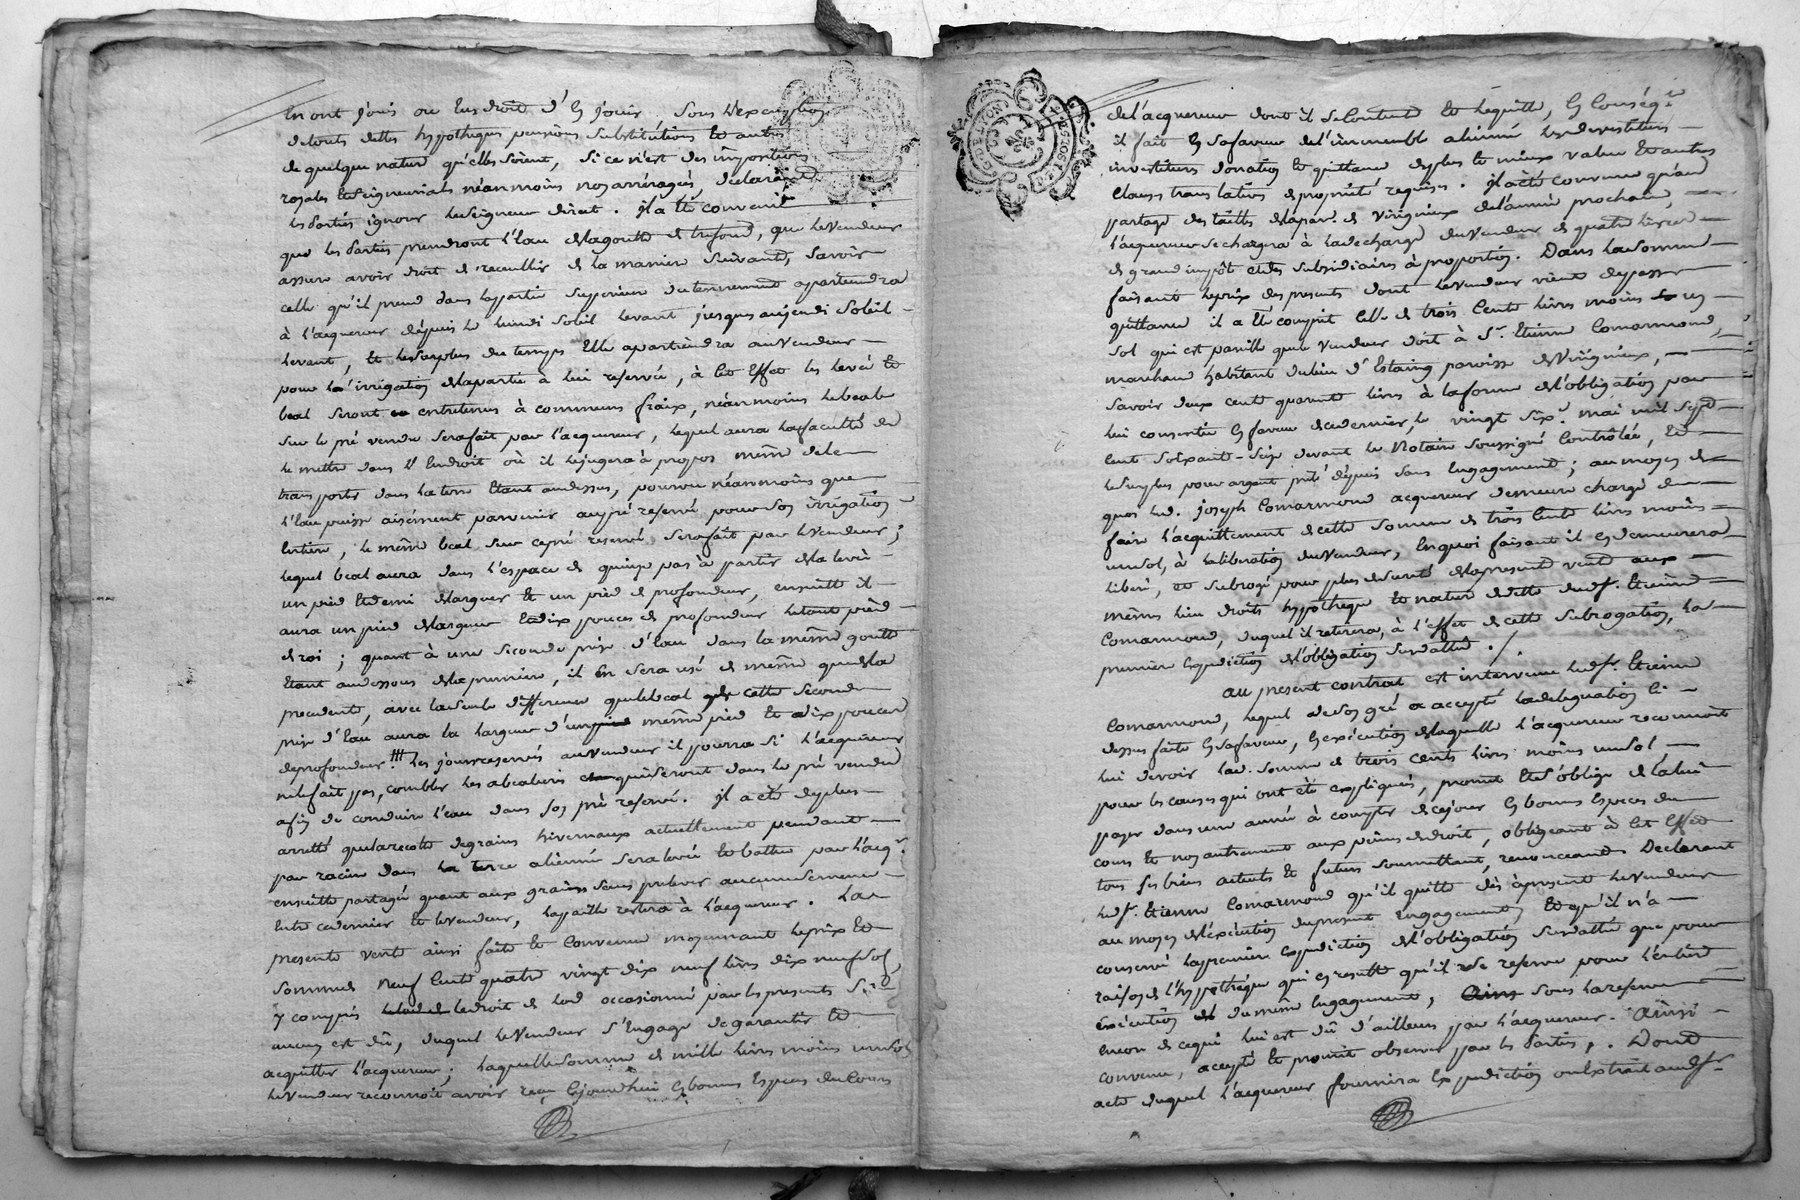 en ont joüis ou eu droit d'en joüir, sous l'exception
de touts dettes hypotheques pensions substitutions et autres
de quelque nature qu'elles soient, si ce n'est des impositions
royales et seigneuriales néanmoins non arréragées, declarant
les parties ignorer le seigneur direct. il a été convenu
que les parties prendront l'eau de la goutte de trefond, que le vendeur
assure avoir droit de receuillir de la maniere suivante, savoir
celle qu'il prend dans la partie superieure du tennement apartiendra
à l'acquereur dépuis le lundi soleil levant jusques au jeudi soleil
levant, et le surplus du temps elle apartiendra au vendeur
pour l'irrigation de la partie à lui reservée, à cet effet les levée et
beal seront entretenus à communs fraix, néanmoins le beal
sur le pré vendu sera fait par l'acquereur, lequel aura la faculté de
le mettre dans l'endroit où il le jugera à propos même de le
transporter dans la terre étant au dessus, pourvu néanmoins que
l'eau puisse aisément parvenir au pré reservé pour son irrigation
entiere, le même beal sur ce pré reservé sera fait par le vendeur;
lequel beal aura dans l'espace de quinze pas à partir de la levée
un pied et demi de largeur et un pied de profondeur, ensuitte il
aura un pied de largeur et dix pouces de profondeur le tout pied
de roi; quant à une seconde prise d'eau dans la même goutte
étant au dessous de la premiere, il en sera usé de même que de la
precedente, avec la seule difference que le beal de cette seconde
prise d'eau aura la largeur d'un même pied et dix pouces
de profondeur. les jours reservés au vendeur il pourra si l'acquereur
ne le fait pas, combler les abealiers qui seront dans le pré vendu
afin de conduire l'eau dans son pré reservé. il a été de plus
arretté que la recolte de grains hivernaux actuellement pendante
par racine dans la terre alienée sera levée et battue par l'acqr.
ensuitte partagée quant aux grains sans prelever aucune semence
entre ce dernier et le vendeur, la paille restera à l'acquereur. La
presente vente ainsi faite et convenue moyennant le prix et
somme de neuf cents quatre vingt dix neuf livres dix neuf sols
y compris le droit de lod occasionné par les presentes si
aucun est dû, duquel le vendeur s'engage de garantir et
acquitter l'acquereur; laquelle somme de mille livres moins un sol
le vendeur reconnoit avoir reçu cejourd'hui en bonnes especes du cours
G. DE LYON
de l'acquereur dont il se contente et le quitte, en conséqce
il fait en sa faveur de l'immeuble aliené les devestiture
investiture donation et quittance de plus et mieux value et autres
clauses translatives de proprieté requises. il a été convenu qu'au
partage des tailles de la par. de virigneux de l'année prochaine,
l'acquereur se chargera à la décharge du vendeur de quatre livres
de grand impôt et des subsidiaires à proportion. Dans la somme
faisant le prix des presentes dont le vendeur vient de passer
quittance il a été compris celle de trois cents livres moins un
sol qui est pareille que le vendeur doit à sr. Etienne Comarmond,
marchand habitant du lieu d'Estaing paroisse de Virigneux,
savoir deux cents quarante livres à la forme de l'obligation par
lui consentie en faveur de ce dernier, le vingt six mai mil sept
cent soixante-seize devant le Notaire soussigné Contrôlée, et
le surplus pour argent prêté dépuis sans engagement; au moyen de
quoi led. joseph Comarmond acquereur demeure chargé de
faire l'acquittement de cette somme de trois cents livres moins
un sol, à la liberation du vendeur, en quoi faisant il en demeurera
liberé, et subrogé pour plus de sureté de la presente vente aux
mêmes lieu droits hypotheque et nature de dette dud sr. Etienne
Comarmond, duquel il retirera, à l'effet de cette subrogation, la
premiere expedition de l'obligation susdatée./.
au present contrat est intervenu led sr. Etienne
Comarmond, lequel de son gré a accepté la deleguation ci
dessus faite en sa faveur, en exécution de laquelle l'acquereur reconnoit
lui devoir lad. somme de trois cents livres moins un sol
pour les causes qui ont été expliquées, promet et s'oblige de la lui
payer dans une année à compter de cejour en bonnes especes du
cours et non autrement aux peines de droit, obligeant à cet effet
tous ses biens actuels et futurs soumettant, renonceant. Declarant
led sr. Etienne Comarmond qu'il quitte dès à present le vendeur
au moyen de l'exécution du present engagement, et qu'il n'a
conservé la premiere expedition de l'obligation susdattée que pour
raison de l'hypothéque qui en resulte qu'il se reserve pour l'entiere
exécution du même engagement, sous la reserve
encore de ce qui lui est dû d'ailleurs par l'acquereur. Ainsi
convenu, accepté et promit observer par les parties,. Dont
acte duquel l'acquereur fournira expedition ou extrait aud sr.